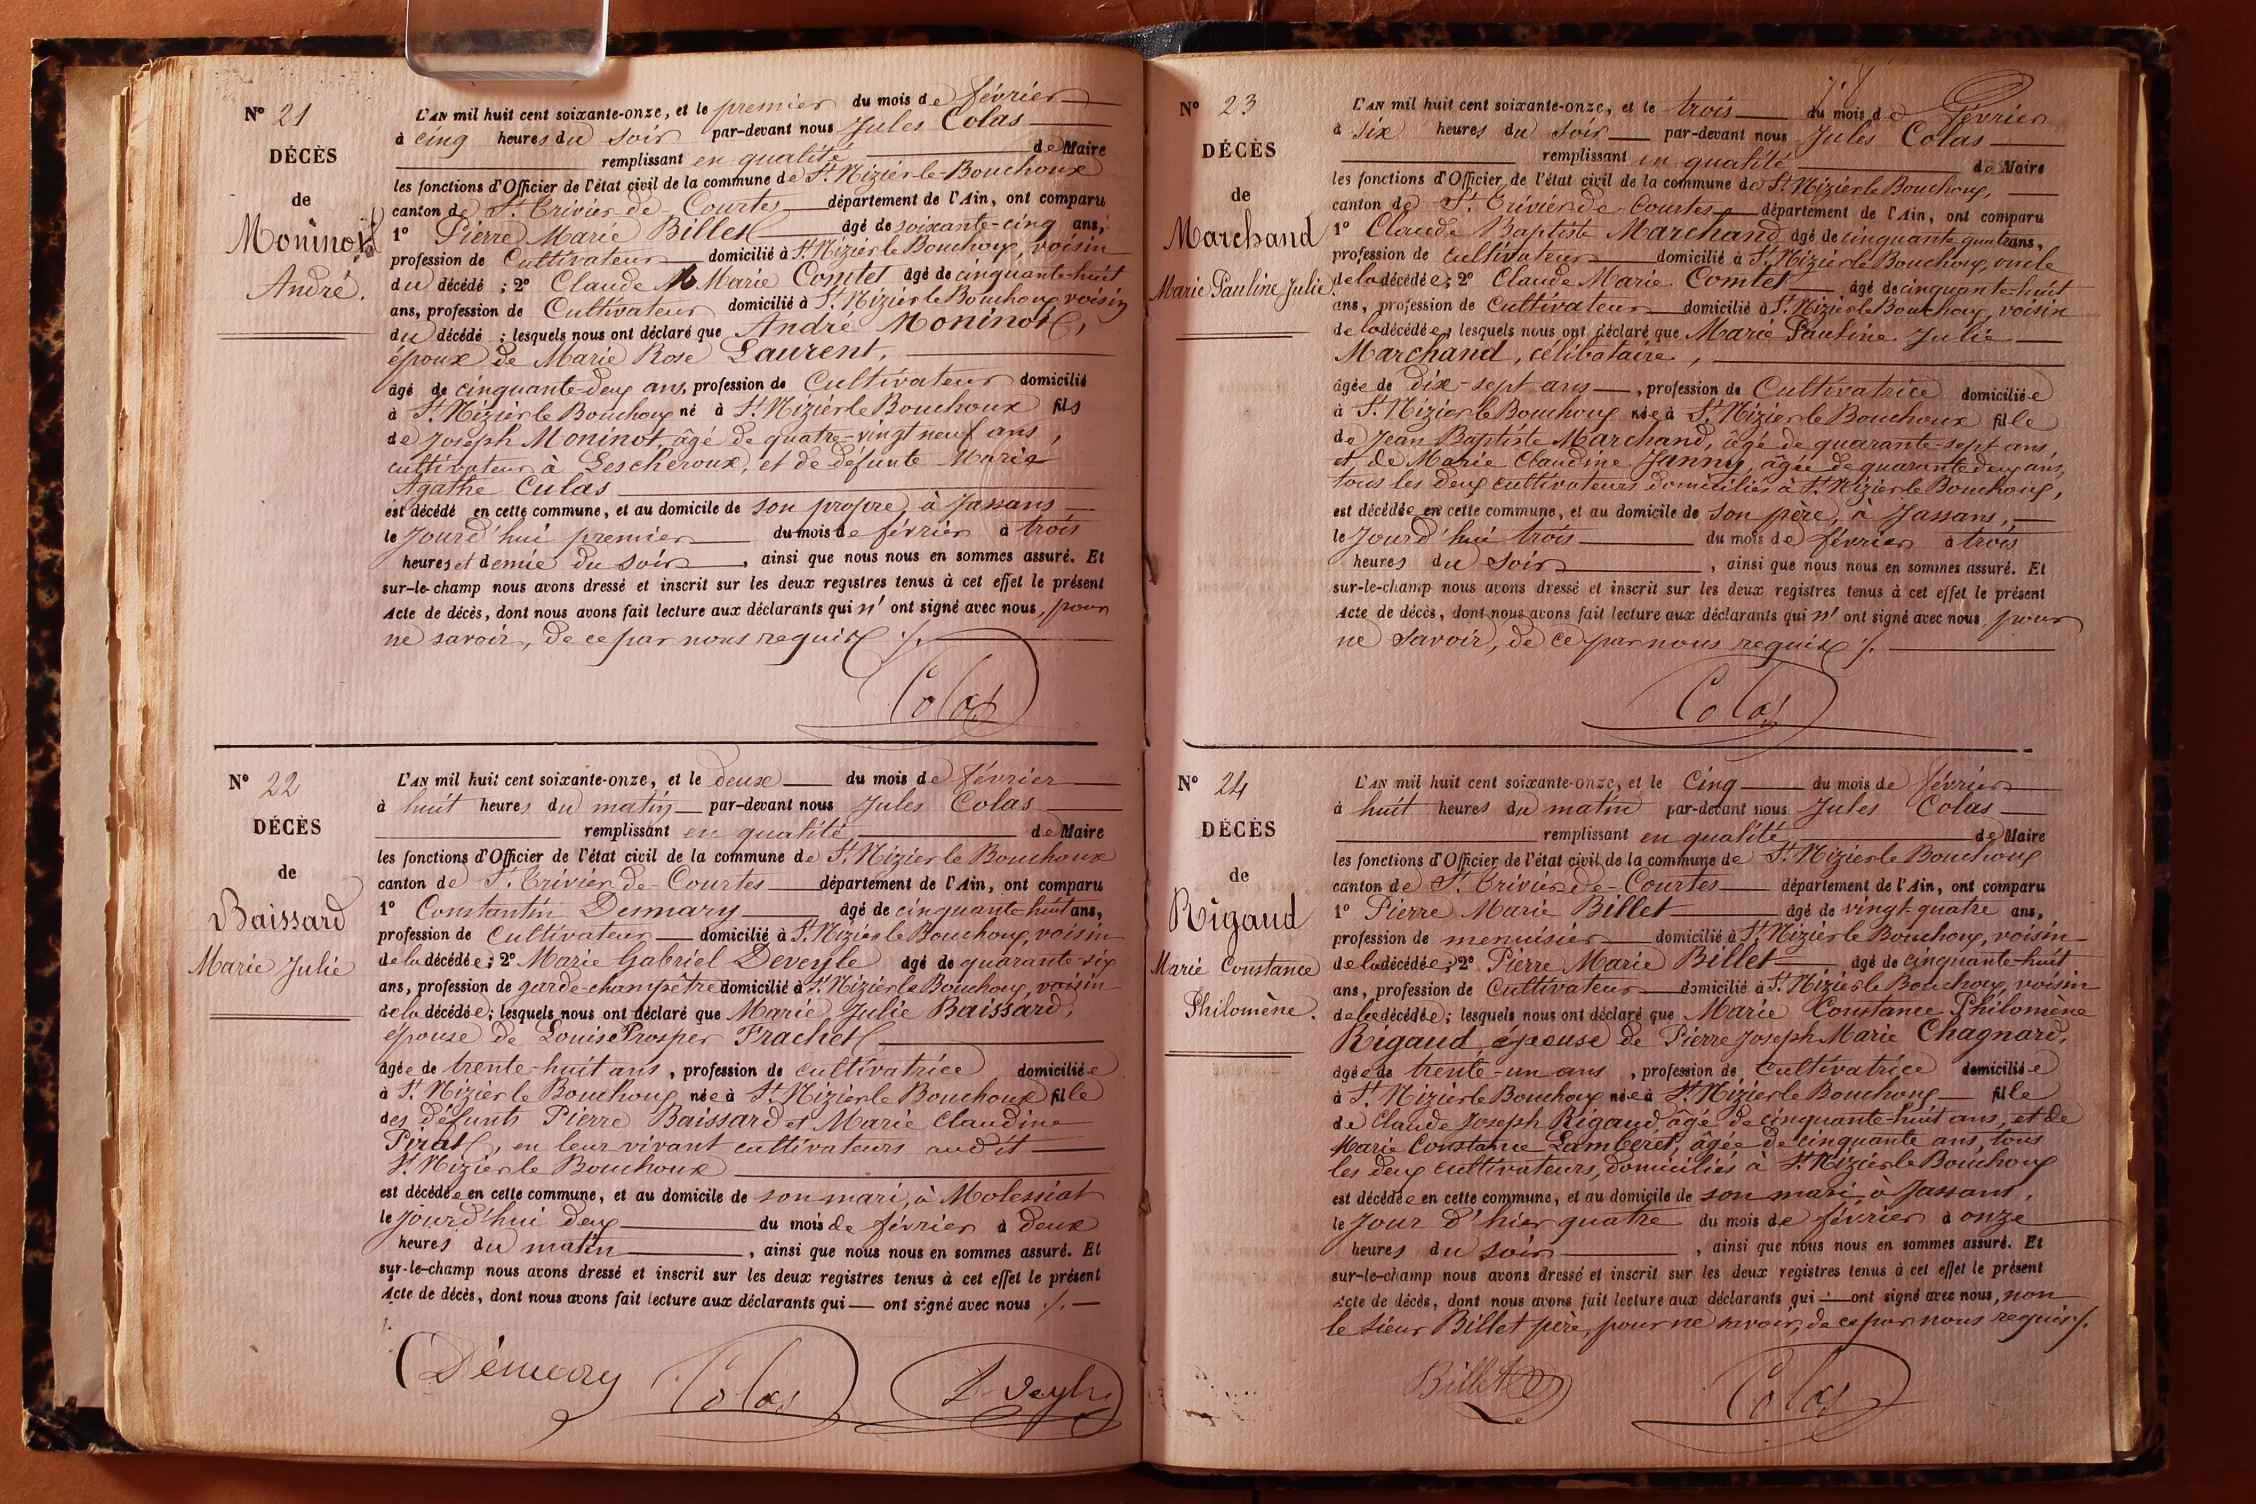 N° 21
DÉCÈS
de
Moninot
André.
L'AN mil huit cent soixante-onze, et le premier du mois de février
à cinq heures du soir par-devant nous Jules Colas
remplissant en qualité de Maire
les fonctions d'Officier de l'état civil de la commune de St. Nizier-le-Bouchoux
canton de St. Trivier-de-Courtes département de l'Ain, ont comparu
1° Pierre Marie Billet âgé de soixante-cinq ans,
profession de Cultivateur domicilié à St. Nizier le Bouchoux, voisin
du décédé ; 2° Claude Marie Comtet âgé de cinquante-huit
ans, profession de Cultivateur domicilié à St. Nizier le Bouchoux voisin
du décédé ; lesquels nous ont déclaré que André Moninot,
époux de Marie Rose Laurent,
âgé de cinquante-deux ans, profession de Cultivateur domicilié
à St. Nizier le Bouchoux né à St. Nizier le Bouchoux fils
de Joseph Moninot, âgé de quatre-vingt neuf ans,
cultivateur à Lescheroux, et de défunte Marie
Agathe Culas
est décédé en cette commune, et au domicile de son propre, à Jassans
le Jourd'hui premier du mois de février à trois
heures et demie du soir, ainsi que nous nous en sommes assuré. Et
sur-le-champ nous avons dressé et inscrit sur les deux registres tenus à cet effet le présent
Acte de décès, dont nous avons fait lecture aux déclarants qui n' ont signé avec nous, pour
ne savoir, de ce par nous requis ./.
Colas
N° 22
DÉCÈS
de
Baissard
Marie Julie
L'AN mil huit cent soixante-onze, et le deux du mois de février
à huit heures du matin par-devant nous Jules Colas
remplissant en qualité de Maire
les fonctions d'Officier de l'état civil de la commune de St. Nizier le Bouchoux
canton de St. Trivier-de-Courtes département de l'Ain, ont comparu
1° Constantin Desmary âgé de cinquante-huit ans,
profession de Cultivateur domicilié à St. Nizier le Bouchoux, voisin
de la décédée ; 2° Marie Gabriel Deveyle âgé de quarante-six
ans, profession de garde-champêtre domicilié à St. Nizier le Bouchoux, voisin
de la décédée ; lesquels nous ont déclaré que Marie Julie Baissard,
épouse de Louis Prosper Frachet
âgée de trente-huit ans, profession de cultivatrice domiciliée
à St. Nizier le Bouchoux née à St. Nizier le Bouchoux fille
des défunts Pierre Baissard et Marie Claudine
Pirat, en leur vivant cultivateurs audit
St. Nizier le Bouchoux
est décédée en cette commune, et au domicile de son mari, à Molessiat
le Jourd'hui deux du mois de février à deux
heures du matin, ainsi que nous nous en sommes assuré. Et
sur-le-champ nous avons dressé et inscrit sur les deux registres tenus à cet effet le présent
Acte de décès, dont nous avons fait lecture aux déclarants qui ont signé avec nous ./.
Démary Colas Deveyle
N° 23
DÉCÈS
de
Marchand
Marie Pauline Julie
L'AN mil huit cent soixante-onze, et le trois du mois de Février
à six heures du soir par-devant nous Jules Colas
remplissant en qualité de Maire
les fonctions d'Officier de l'état civil de la commune de St. Nizier le Bouchoux,
canton de St. Trivier-de-Courtes département de l'Ain, ont comparu
1° Claude Baptiste Marchand âgé de cinquante quatre ans,
profession de cultivateur domicilié à St. Nizier le Bouchoux, oncle
de la décédée ; 2° Claude Marie Comtet âgé de cinquante-huit
ans, profession de Cultivateur domicilié à St. Nizier le Bouchoux, voisin
de la décédée, lesquels nous ont déclaré que Marie Pauline Julie
Marchand, célibataire,
âgée de dix-sept ans, profession de Cultivatrice domiciliée
à St. Nizier le Bouchoux née à St. Nizier le Bouchoux fille
de Jean Baptiste Marchand, âgé de quarante-sept ans,
et de Marie Claudine Janny, âgée de quarante deux ans,
tous les deux cultivateurs domiciliés à St. Nizier le Bouchoux,
est décédée en cette commune, et au domicile de son père, à Jassans,
le Jourd'hui trois du mois de février à trois
heures du soir, ainsi que nous nous en sommes assuré. Et
sur-le-champ nous avons dressé et inscrit sur les deux registres tenus à cet effet le présent
Acte de décès, dont nous avons fait lecture aux déclarants qui n' ont signé avec nous pour
ne savoir, de ce par nous requis ./.
Colas
N° 24
DÉCÈS
de
Rigaud
Marie Constance
Philomène.
L'AN mil huit cent soixante-onze, et le Cinq du mois de février
à huit heures du matin par-devant nous Jules Colas
remplissant en qualité de Maire
les fonctions d'Officier de l'état civil de la commune de St. Nizier le Bouchoux
canton de St. Trivier-de-Courtes département de l'Ain, ont comparu
1° Pierre Marie Billet âgé de vingt-quatre ans,
profession de menuisier domicilié à St. Nizier le Bouchoux, voisin
de la décédée ; 2° Pierre Marie Billet âgé de cinquante-huit
ans, profession de Cultivateur domicilié à St. Nizier le Bouchoux, voisin
de la décédée ; lesquels nous ont déclaré que Marie Constance Philomène
Rigaud, épouse de Pierre Joseph Marie Chagnard,
âgée de trente-un ans, profession de Cultivatrice domiciliée
à St. Nizier le Bouchoux née à St. Nizier le Bouchoux fille
de Claude Joseph Rigaud, âgé de cinquante-huit ans, et de
Marie Constance Lamberet, âgée de cinquante ans, tous
les deux cultivateurs, domiciliés à St. Nizier le Bouchoux
est décédée en cette commune, et au domicile de son mari, à Jassans,
le Jour d'hier quatre du mois de février à onze
heures du soir, ainsi que nous nous en sommes assuré. Et
sur-le-champ nous avons dressé et inscrit sur les deux registres tenus à cet effet le présent
Acte de décès, dont nous avons fait lecture aux déclarants qui ont signé avec nous, non
le sieur Billet père, pour ne savoir, de ce par nous requis ./.
Billet Colas